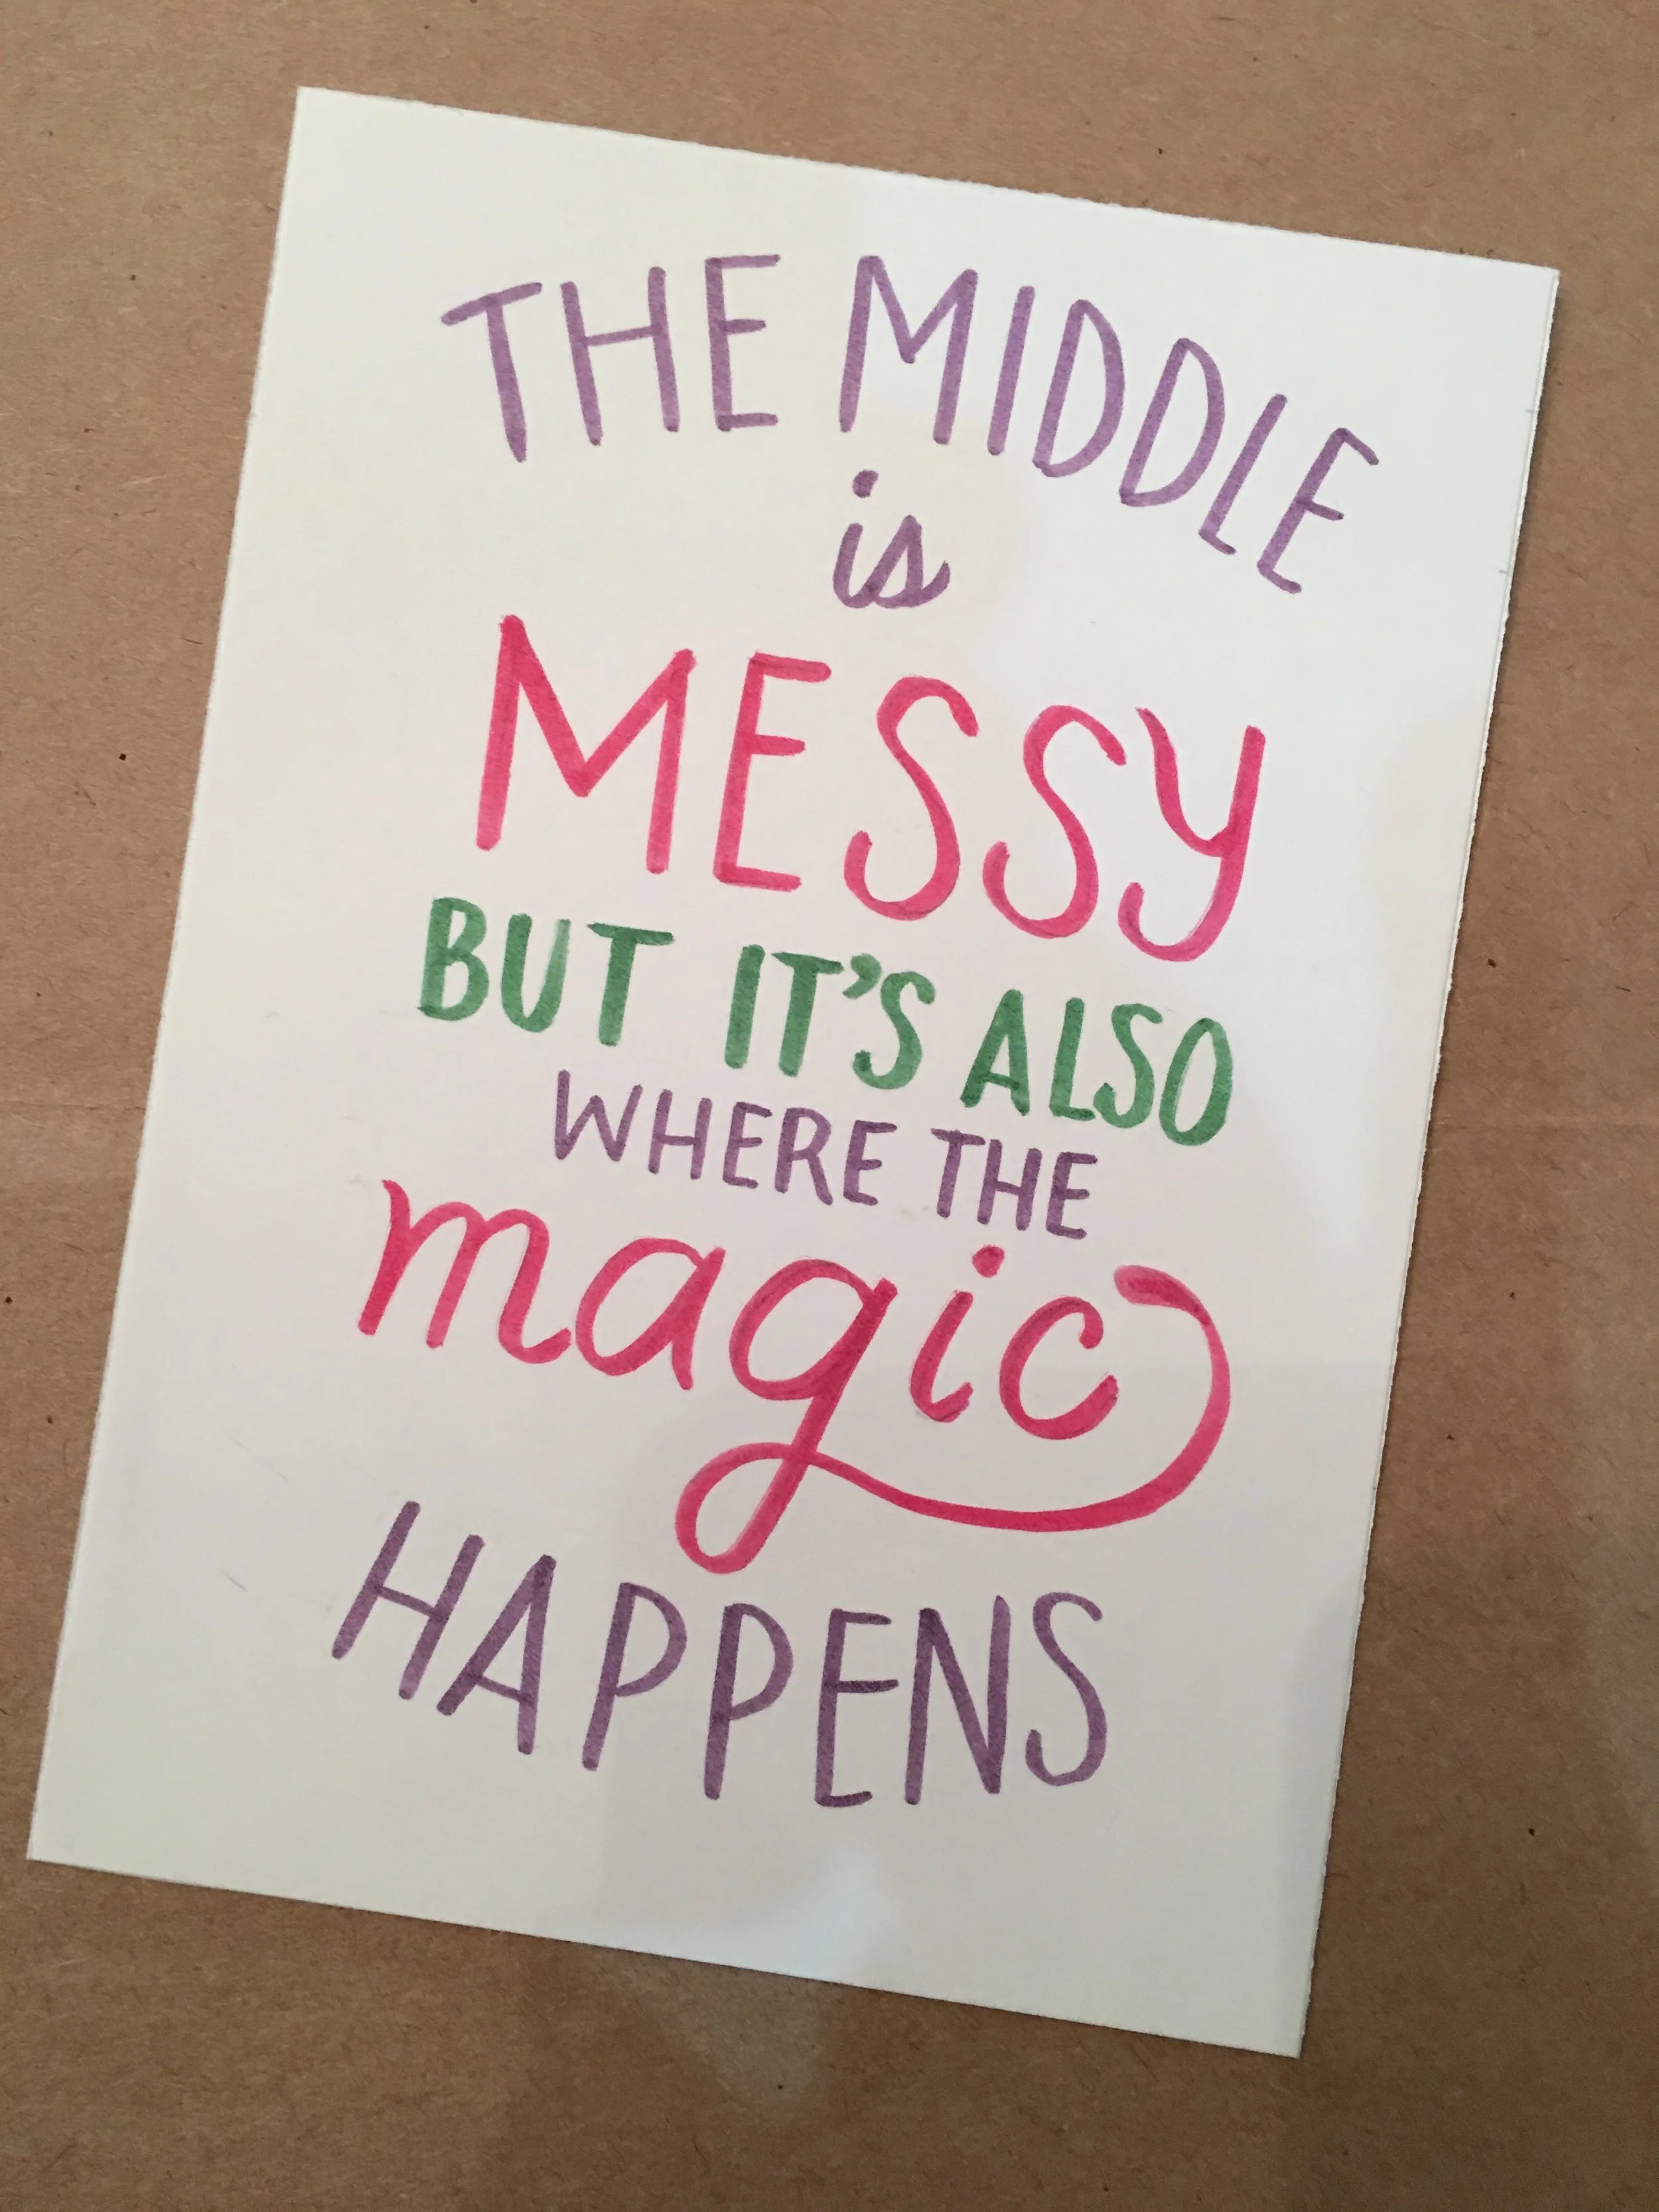 THE MIDDLE
is
MESSY
BUT IT'S ALSO
WHERE THE
magic
HAPPENS